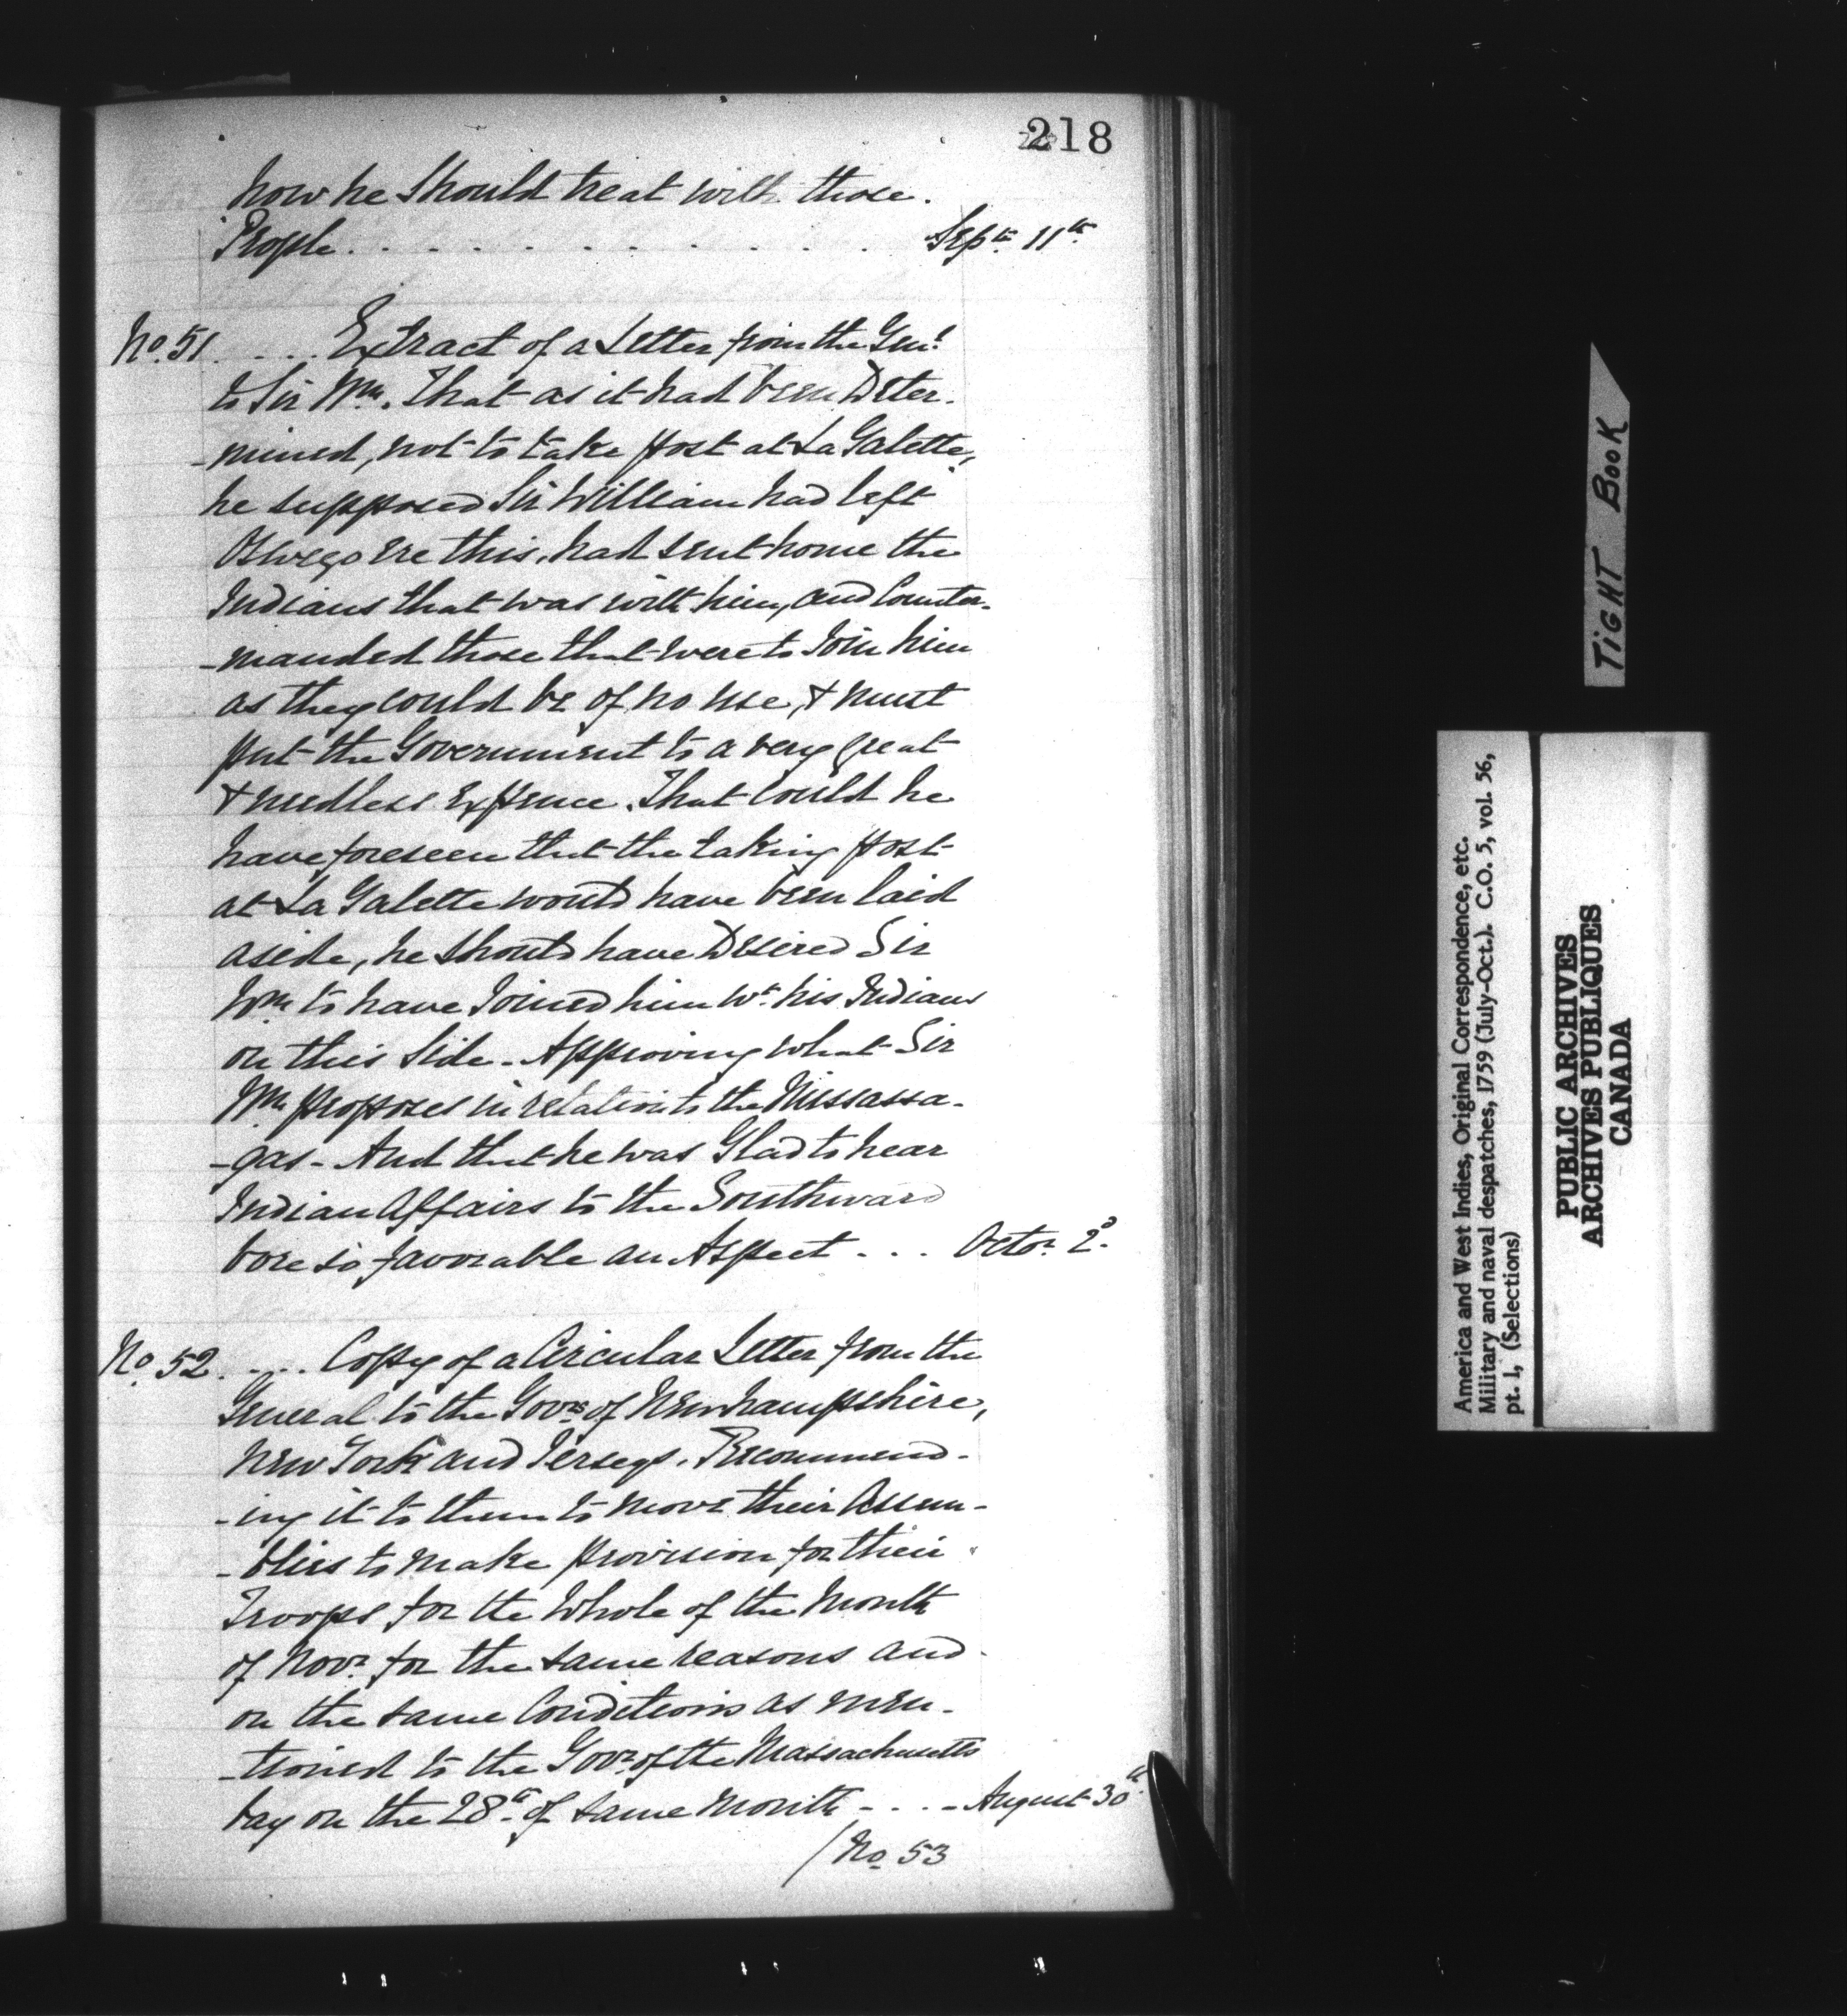 218
how he should treat with those.
People . . . . . . . . . . . Septr. 11th.
No. 51. . . . Extract of a Letter from the Genl.
to Sir Wm. That as it had been Deter-
-mined, not to take Post at La Galette,
he supposed Sir William had left
Oswego ere this, had sent home the
Indians that was with him, and Counter-
-manded those that were to Join him
as they could be of no use, & must
put the Government to a very great
& needless Expence. That could he
have foreseen that the taking Post
at La Galette would have been laid
aside, he should have Desired Sir
Wm. to have Joined him wt. his Indians
on this Side - Approving what Sir
Wm. proposes in relation to the Missassa-
-gas - And that he was Glad to hear
Indian Affairs to the Southward
bore so favorable an Aspect - . . Octor. 2d.
No. 52. . . . Copy of a Circular Letter from the
General to the Govrs. of Newhampshire,
New York and Jerseys. Recommend-
-ing it to them to move their Assem-
-blies to make provision for their
Troops for the Whole of the Month
of Novr. for the same reasons and
on the same Conditions as men-
-tioned to the Govr. of the Massachusetts
bay on the 28th. of same Month - . . - August 30th.
/No. 53
TiGHT BooK
America and West Indies, Original Correspondence, etc.
Military and naval despatches, 1759 (July-Oct.). C.O. 5, vol. 56,
pt. 1, (Selections)
PUBLIC ARCHIVES
ARCHIVES PUBLIQUES
CANADA